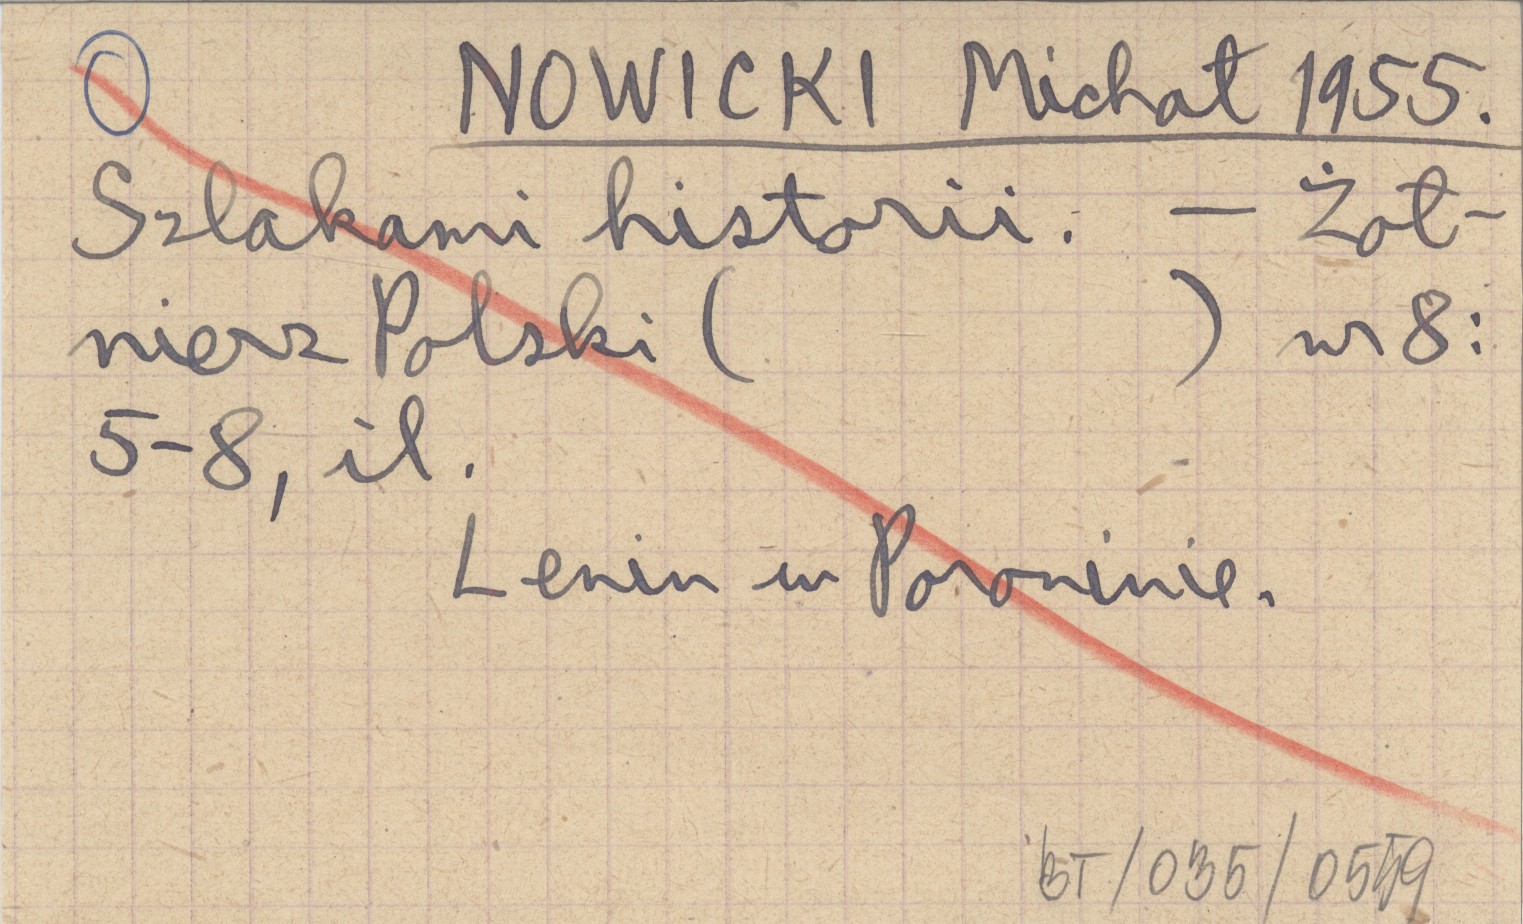 NOWICKI Michał 1955.
Szlakami historii. — Żoł-
nierz Polski ( ) nr 8:
5-8, il.
Lenin w Poroninie.
BT/035/0559